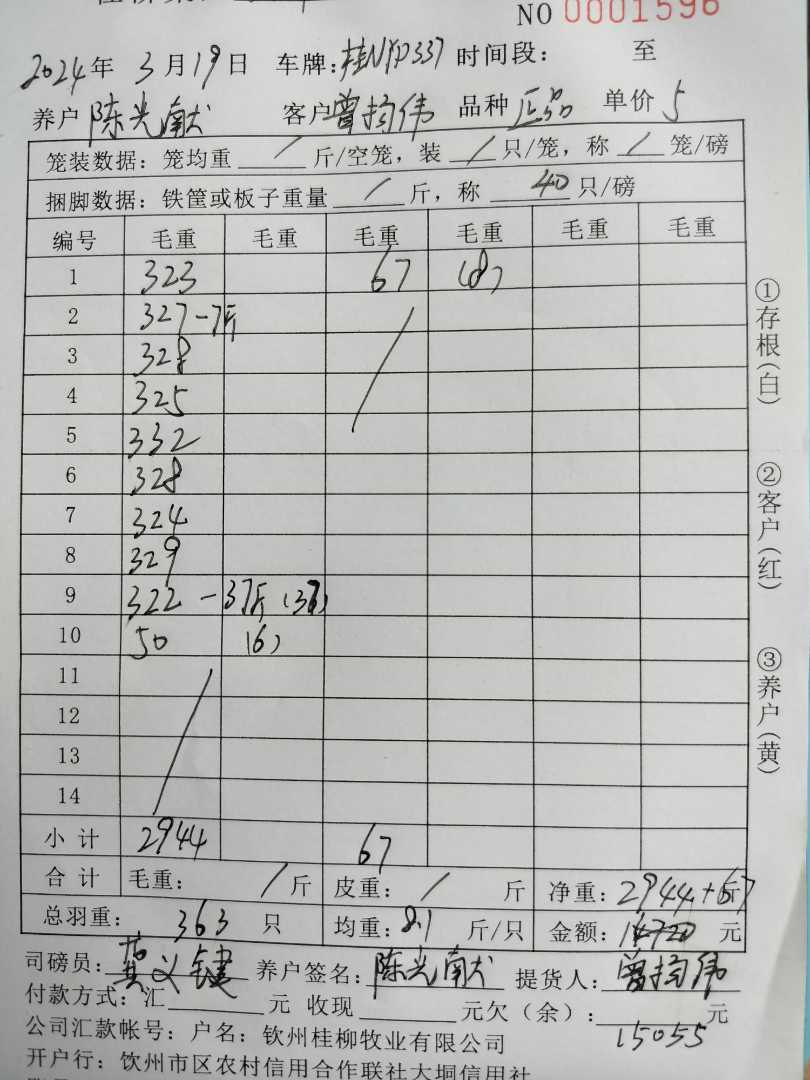 NO 0001596
2024年 3月19日 车牌:桂NYD337 时间段: 至
养户 陈光献 客户 曾扬伟 品种 正品 单价 5
笼装数据: 笼均重 / 斤/空笼, 装 / 只/笼, 称 / 笼/磅
捆脚数据: 铁筐或板子重量 / 斤, 称 40 只/磅
编号 毛重 毛重 毛重 毛重 毛重 毛重
1 323 67 (8)
2 327-7斤
3 328
4 325
5 332
6 328
7 324
8 329
9 322 -37斤 (37)
10 50 (6)
11
12
13
14
小计 2944 67
合计 毛重: / 斤 皮重: / 斤 净重: 2944+67 斤
总羽重: 363 只 均重: 8.1 斤/只 金额: 14720 元
司磅员: 黄义键 养户签名: 陈光献 提货人: 曾扬伟
付款方式: 汇 元 收现 元欠(余): 元
15055
公司汇款帐号: 户名: 钦州桂柳牧业有限公司
开户行: 钦州市区农村信用合作联社大垌信用社
①存根(白)
②客户(红)
③养户(黄)